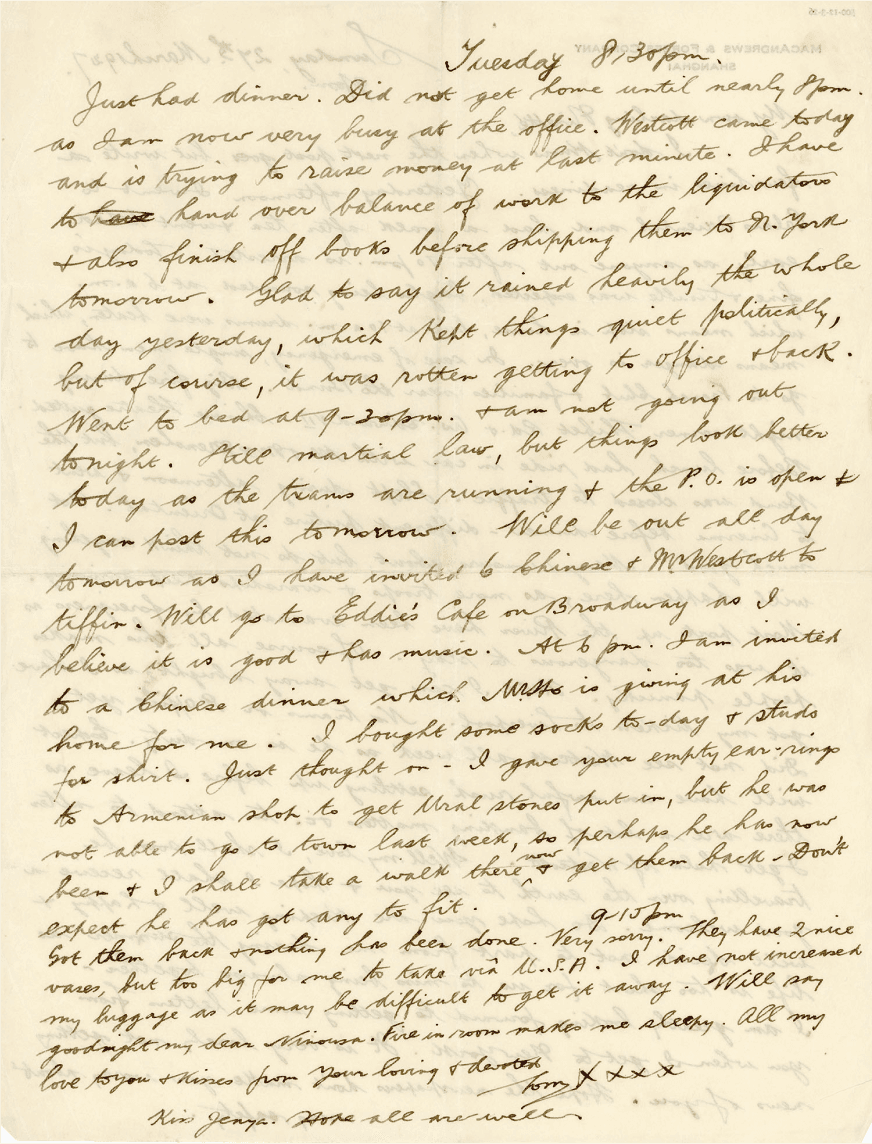 Tuesday 8/30pm.
Just had dinner. Did not get home until nearly 8pm.
as I am now very busy at the office. Westcott came today
and is trying to raise money at last minute. I have
to have hand over balance of work to the liquidators
& also finish off books before shipping them to N. York
tomorrow. Glad to say it rained heavily the whole
day yesterday, which kept things quiet politically,
but of course, it was rotten getting to office & back.
Went to bed at 9-30pm. & am not going out
tonight. Still martial law, but things look better
today as the trams are running & the P.O. is open &
I can post this tomorrow. Will be out all day
tomorrow as I have invited 6 Chinese & Mr Westcott to
tiffin. Will go to Eddie's Cafe on Broadway as I
believe it is good & has music. At 6 pm. I am invited
to a Chinese dinner which is giving at his
home for me. I bought some socks to-day & studs
for shirt. Just thought on - I gave your empty ear-rings
to Armenian shop to get Ural stones put in, but he was
not able to go to town last week, so perhaps he has now
been & I shall take a walk there now & get them back - Don't
expect he has got any to fit. 9-10pm
Got them back & nothing has been done. Very sorry. They have 2 nice
vases, but too big for me to take via U.S.A. I have not increased
my luggage as it may be difficult to get it away. Will say
goodnight my dear Ninousa. Fire in room makes me sleepy. All my
love to you & kisses from your loving & devoted
Tom X X X X
Kiss Jenya. Hope all are well
MACANDREWS & FORBES COMPANY
SHANGHAI
Sunday 27th March 1927.